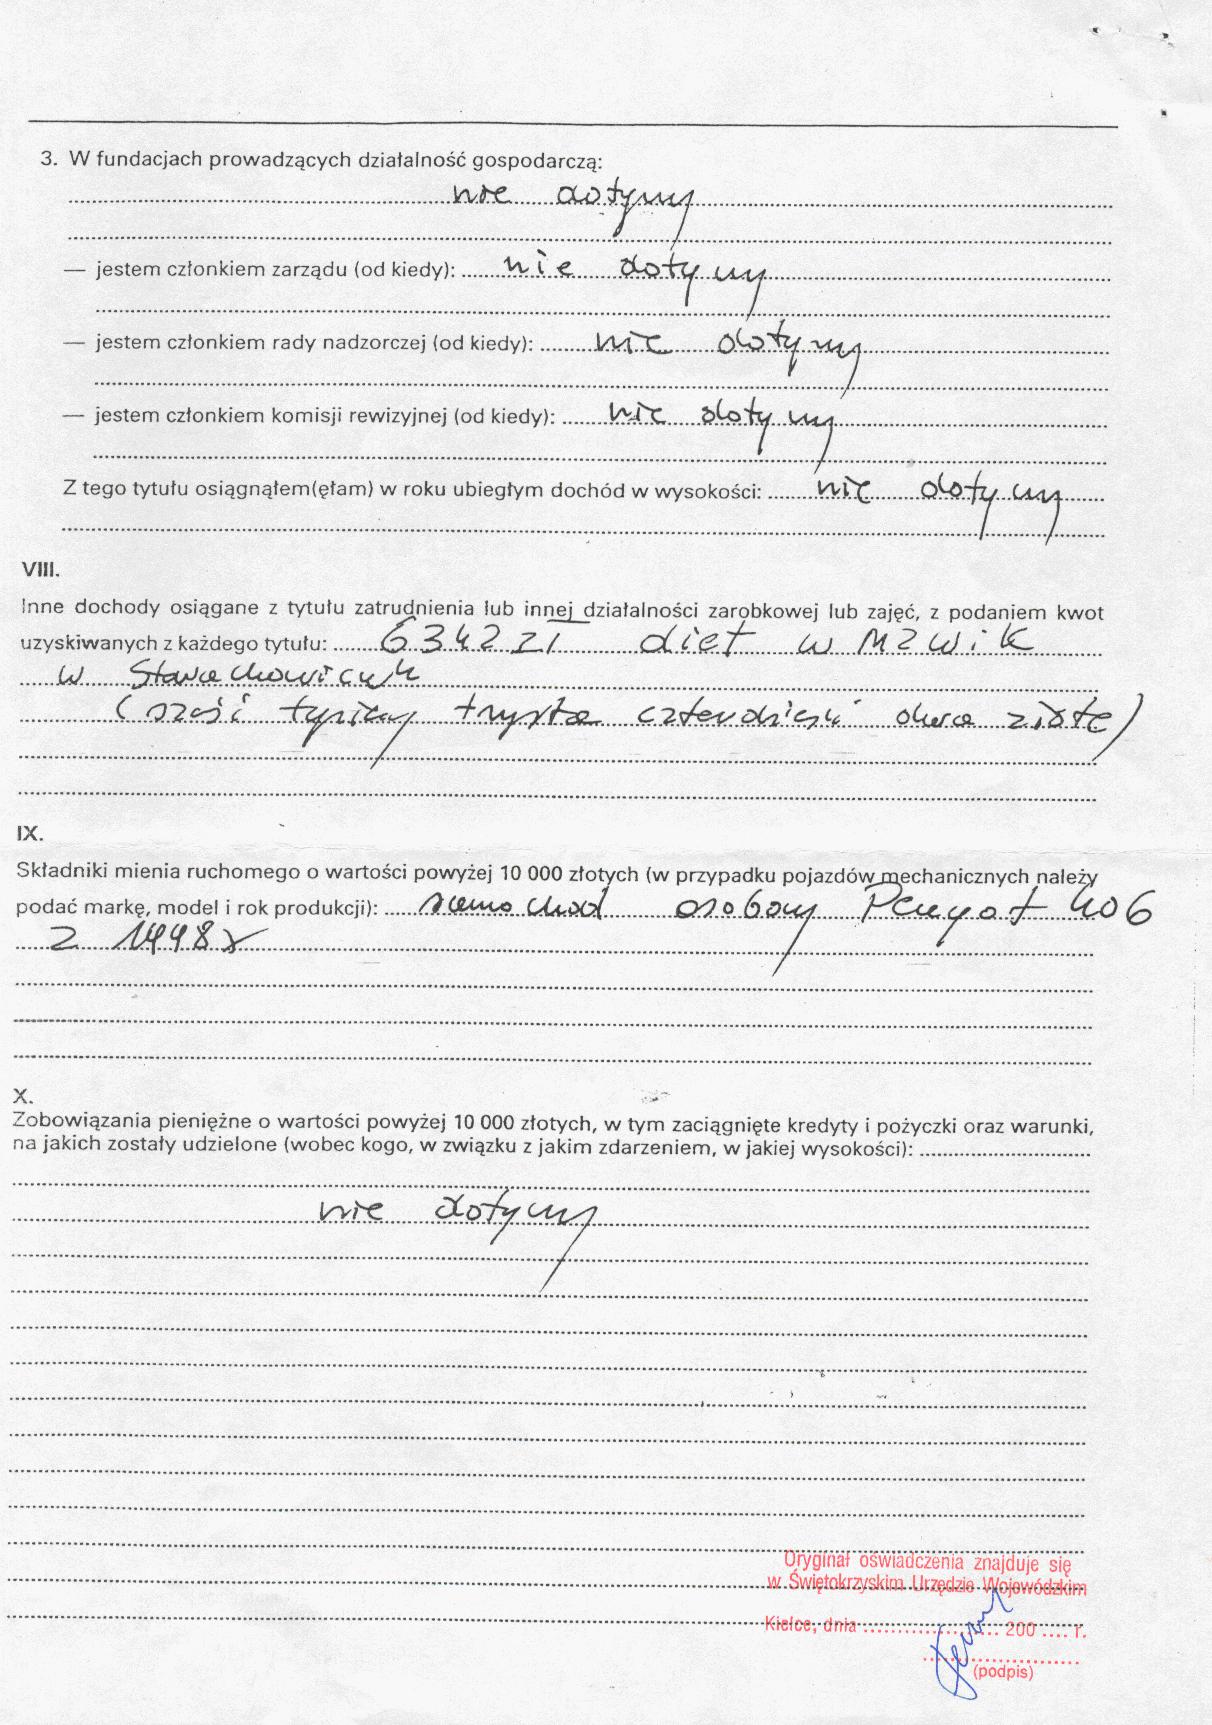 3. W fundacjach prowadzących działalność gospodarczą:
nie dotyczy
— jestem członkiem zarządu (od kiedy): nie dotyczy
— jestem członkiem rady nadzorczej (od kiedy): nie dotyczy
— jestem członkiem komisji rewizyjnej (od kiedy): nie dotyczy
Z tego tytułu osiągnąłem(ęłam) w roku ubiegłym dochód w wysokości: nie dotyczy
VIII.
Inne dochody osiągane z tytułu zatrudnienia lub innej działalności zarobkowej lub zajęć, z podaniem kwot
uzyskiwanych z każdego tytułu: 6342 zł diet w MZWiK
w Starachowicach
(sześć tysięcy trzysta czterdzieści dwa złote)
IX.
Składniki mienia ruchomego o wartości powyżej 10 000 złotych (w przypadku pojazdów mechanicznych należy
podać markę, model i rok produkcji): samochod osobowy Peugot 406
z 1998 r
X.
Zobowiązania pieniężne o wartości powyżej 10 000 złotych, w tym zaciągnięte kredyty i pożyczki oraz warunki,
na jakich zostały udzielone (wobec kogo, w związku z jakim zdarzeniem, w jakiej wysokości):
nie dotyczy
Oryginał oświadczenia znajduje się
w Świętokrzyskim Urzędzie Wojewódzkim
Kielce, dnia .................... 200 .... r.
(podpis)